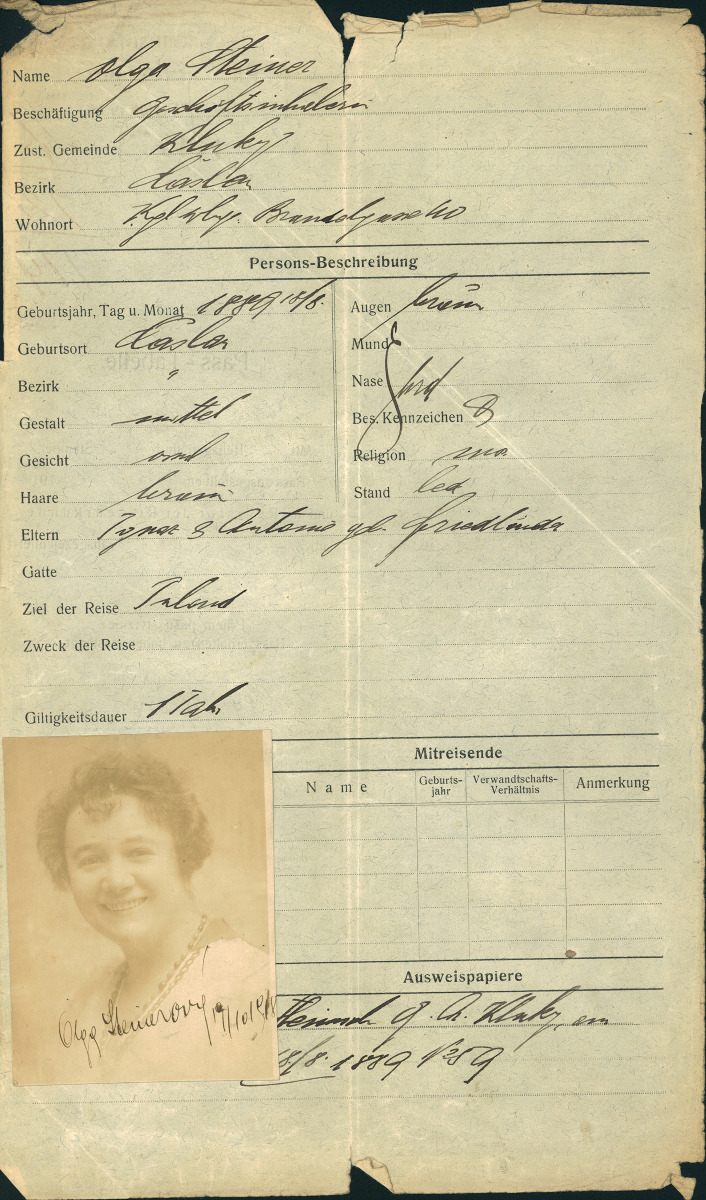 Name Olga Steiner
Beschäftigung Geschäftsinhaberin
Zust. Gemeinde Kluky
Bezirk Časlau
Wohnort Kgl. Wbg.
Persons-Beschreibung
Geburtsjahr, Tag u. Monat 1889 18/8.
Geburtsort Časlau
Bezirk "
Gestalt mittel
Gesicht oval
Haare braun
Augen braun
Mund
Nase prop
Bes. Kennzeichen
Religion mos
Stand led
Eltern Ignaz & Antonie geb.
Gatte
Ziel der Reise Inland
Zweck der Reise
Giltigkeitsdauer 1 Jahr
Mitreisende
Name Geburts-jahr Verwandtschafts-Verhältnis Anmerkung
Ausweispapiere
Heimsch Kluky
18/8. 1889
Olga Steinerová